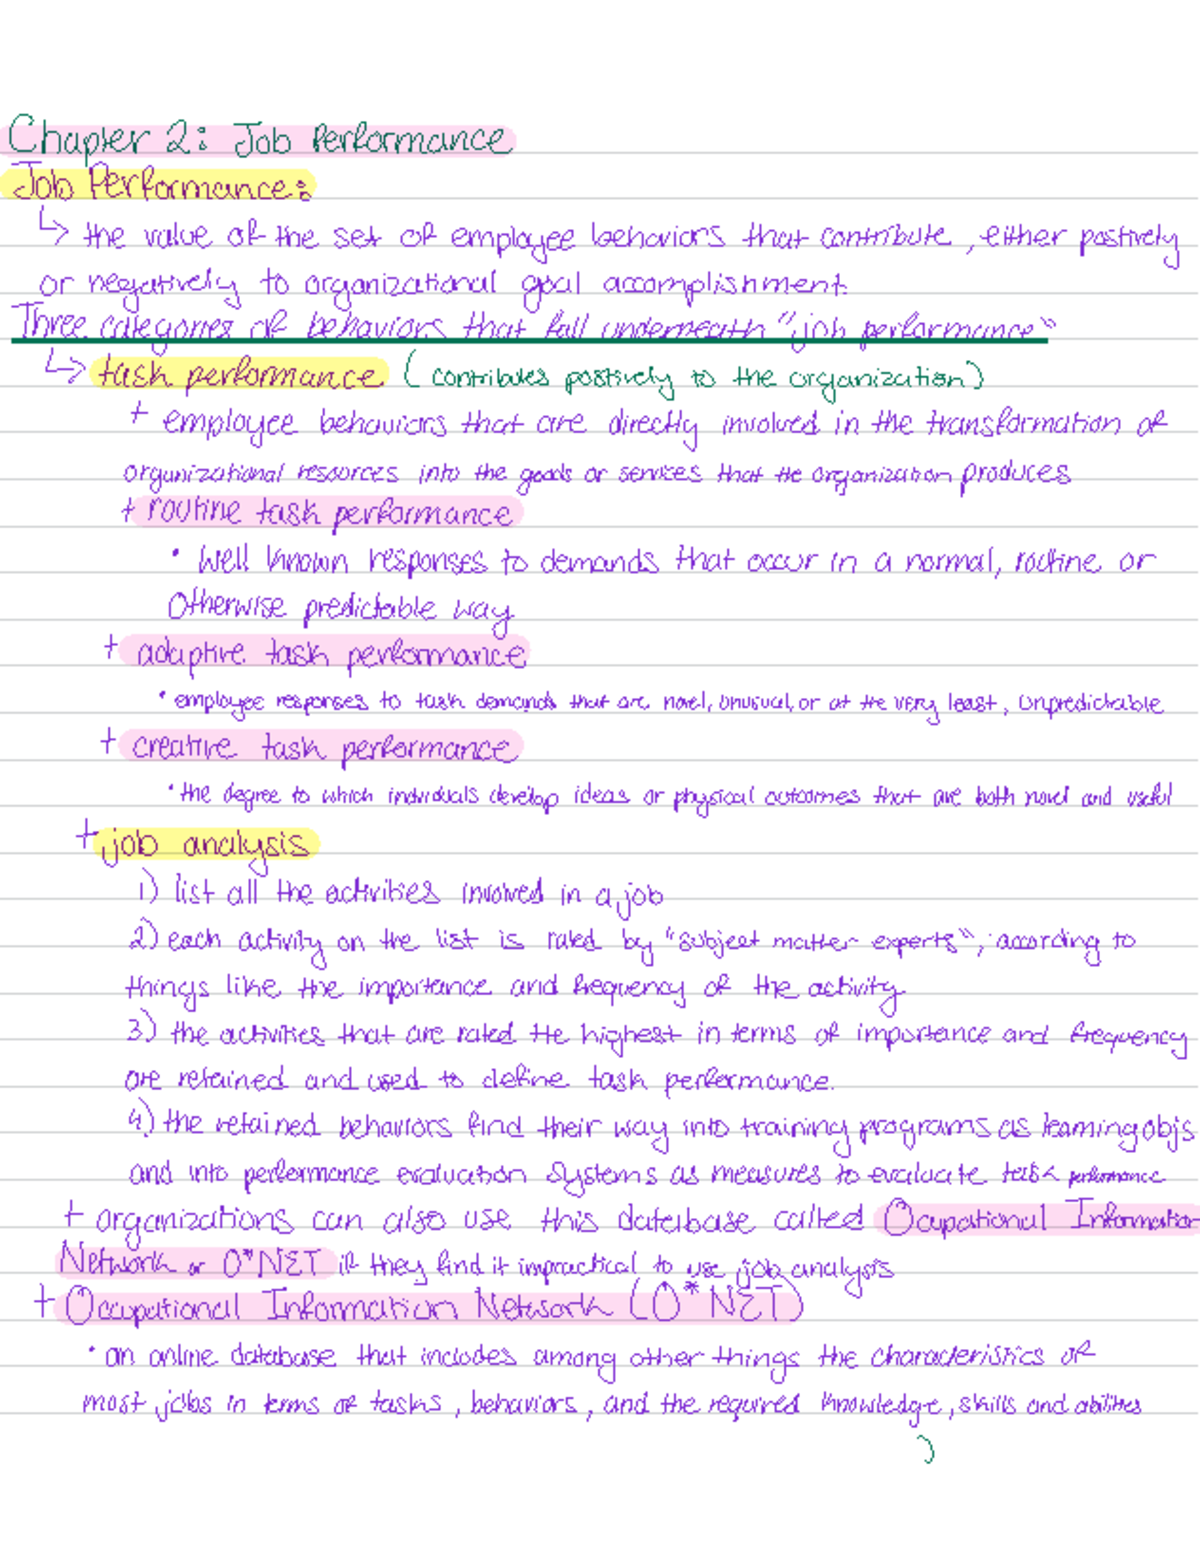 Chapter 2: Job Performance
Job Performance:
↳ the value of the set of employee behaviors that contribute, either postively
or negatively to organizational goal accomplishment.
Three categories of behaviors that fall underneath "job performance"
↳ task performance (contributes postively to the organization)
+ employee behaviors that are directly involved in the transformation of
organizational resources into the goods or services that the organization produces
+ routine task performance
• Well known responses to demands that occur in a normal, routine or
Otherwise predictable way
+ adaptive task performance
• employee responses to task demands that are novel, unusual, or at the very least, unpredictable
+ creative task performance
• the degree to which individuals develop ideas or physical outcomes that are both novel and useful
+ job analysis
1) list all the activities involved in a job
2) each activity on the list is rated by "subject matter experts", according to
things like the importance and frequency of the activity
3) the activities that are rated the highest in terms of importance and frequency
are retained and used to define task performance.
4) the retained behaviors find their way into training programs as learning objs
and into performance evaluation systems as measures to evaluate task performance
+ organizations can also use this database called Ocupational Information
Network or O*NET if they find it impractical to use job analysis
+ Occupational Information Network (O*NET)
• an online database that includes among other things the characteristics of
most jobs in terms of tasks, behaviors, and the required knowledge, skills and abilities
)